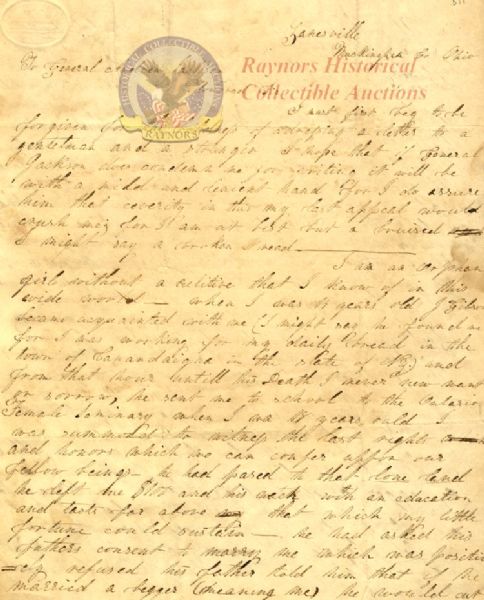 Zanesville
Muskingham Co Ohio
Raynors Historical
Collectible Auctions
HISTORICAL COLLECTIBLE AUCTIONS
RAYNORS
To General
I must first beg to be
forgiven for of a letter to a
gentleman and a stranger I hope that if General
Jackson does condemn me for writing it will be
with a mild and lenient hand For I do assure
him that ceverity in this my last appeal would
crush me for I am at best but a bruised
I might say a broken reed
I am an orphan
girl without a relitive that I know of in this
wide world — when I was years old J
became acquainted with me (I might say he found me
for I was working for my daily bread in the
town of Canandaigua in the state of NY) and
from that hour untill his Death I never new want
or sorrow, he sent me to school to the Ontario
Female Seminary when I was years ould I
was summoned to witness the last rights
and honors which we can confer uppon our
fellow beings — he had passed to that lone land
he left me and his with an education
and taste far above that which my little
fortune could sustain — he had asked his
fathers consent to marry me which was positiv
ely refused his father told him that if he
married a begger (meaning me) he would cut